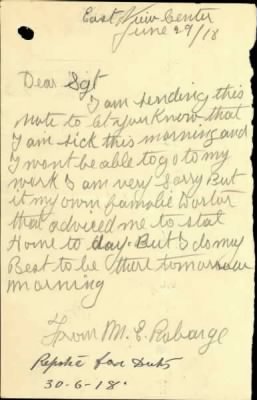 East View Center
June 29/18
Dear Sgt
I am sending this
note to let you know that
I am sick this morning and
I wont be able to go to my
work I am very sorry But
it my own familie Doctor
that adviced me to stat
Home to day. But I do my
Best to be there tomorrow
morning
From M. E. Robarge
for Duty
30-6-18.